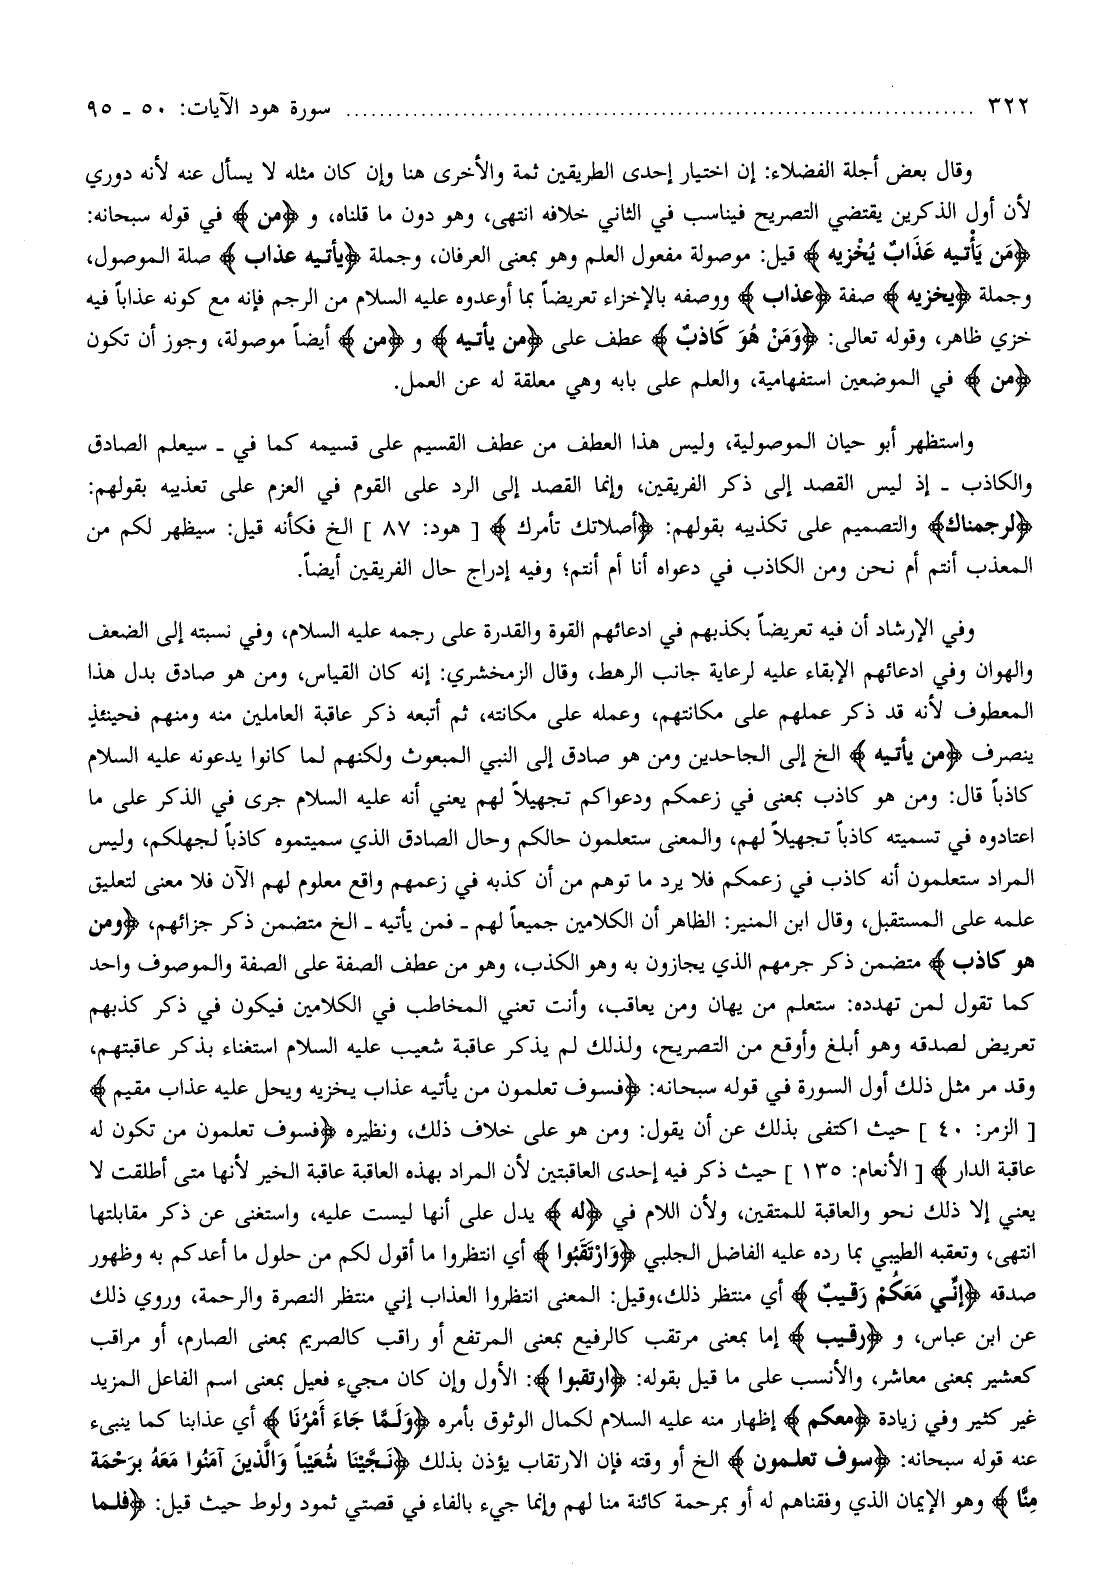 ٣٢٢ ........................................................................ سورة هود الآيات: ٥٠ ـ ٩٥
وقال بعض أجلة الفضلاء: إن اختيار إحدى الطريقين ثمة والأخرى هنا وإن كان مثله لا يسأل عنه لأنه دوري
لأن أول الذكرين يقتضي التصريح فيناسب في الثاني خلافه انتهى، وهو دون ما قلناه، و ﴿من﴾ في قوله سبحانه:
﴿مَن يَأْتيه عَذَابٌ يُخْزيه﴾ قيل: موصولة مفعول العلم وهو بمعنى العرفان، وجملة ﴿يأتيه عذاب﴾ صلة الموصول،
وجملة ﴿يخزيه﴾ صفة ﴿عذاب﴾ ووصفه بالإخزاء تعريضاً بما أوعدوه عليه السلام من الرجم فإنه مع كونه عذاباً فيه
خزي ظاهر، وقوله تعالى: ﴿وَمَنْ هُوَ كَاذبٌ﴾ عطف على ﴿من يأتيه﴾ و ﴿من﴾ أيضاً موصولة، وجوز أن تكون
﴿من﴾ في الموضعين استفهامية، والعلم على بابه وهي معلقة له عن العمل.
واستظهر أبو حيان الموصولية، وليس هذا العطف من عطف القسيم على قسيمه كما في ـ سيعلم الصادق
والكاذب ـ إذ ليس القصد إلى ذكر الفريقين، وإنما القصد إلى الرد على القوم في العزم على تعذيبه بقولهم:
﴿لرجمناك﴾ والتصميم على تكذيبه بقولهم: ﴿أصلاتك تأمرك﴾ [ هود: ٨٧ ] الخ فكأنه قيل: سيظهر لكم من
المعذب أنتم أم نحن ومن الكاذب في دعواه أنا أم أنتم؛ وفيه إدراج حال الفريقين أيضاً.
وفي الإرشاد أن فيه تعريضاً بكذبهم في ادعائهم القوة والقدرة على رجمه عليه السلام، وفي نسبته إلى الضعف
والهوان وفي ادعائهم الإبقاء عليه لرعاية جانب الرهط، وقال الزمخشري: إنه كان القياس، ومن هو صادق بدل هذا
المعطوف لأنه قد ذكر عملهم على مكانتهم، وعمله على مكانته، ثم أتبعه ذكر عاقبة العاملين منه ومنهم فحينئذٍ
ينصرف ﴿من يأتيه﴾ الخ إلى الجاحدين ومن هو صادق إلى النبي المبعوث ولكنهم لما كانوا يدعونه عليه السلام
كاذباً قال: ومن هو كاذب بمعنى في زعمكم ودعواكم تجهيلاً لهم يعني أنه عليه السلام جرى في الذكر على ما
اعتادوه في تسميته كاذباً تجهيلاً لهم، والمعنى ستعلمون حالكم وحال الصادق الذي سميتموه كاذباً لجهلكم، وليس
المراد ستعلمون أنه كاذب في زعمكم فلا يرد ما توهم من أن كذبه في زعمهم واقع معلوم لهم الآن فلا معنى لتعليق
علمه على المستقبل، وقال ابن المنير: الظاهر أن الكلامين جميعاً لهم ـ فمن يأتيه ـ الخ متضمن ذكر جزائهم، ﴿ومن
هو كاذب﴾ متضمن ذكر جرمهم الذي يجازون به وهو الكذب، وهو من عطف الصفة على الصفة والموصوف واحد
كما تقول لمن تهدده: ستعلم من يهان ومن يعاقب، وأنت تعني المخاطب في الكلامين فيكون في ذكر كذبهم
تعريض لصدقه وهو أبلغ وأوقع من التصريح، ولذلك لم يذكر عاقبة شعيب عليه السلام استغناء بذكر عاقبتهم،
وقد مر مثل ذلك أول السورة في قوله سبحانه: ﴿فسوف تعلمون من يأتيه عذاب يخزيه ويحل عليه عذاب مقيم﴾
[ الزمر: ٤٠ ] حيث اكتفى بذلك عن أن يقول: ومن هو على خلاف ذلك، ونظيره ﴿فسوف تعلمون من تكون له
عاقبة الدار﴾ [ الأنعام: ١٣٥ ] حيث ذكر فيه إحدى العاقبتين لأن المراد بهذه العاقبة عاقبة الخير لأنها متى أطلقت لا
يعني إلا ذلك نحو والعاقبة للمتقين، ولأن اللام في ﴿له﴾ يدل على أنها ليست عليه، واستغنى عن ذكر مقابلتها
انتهى، وتعقبه الطيبي بما رده عليه الفاضل الجلبي ﴿وَارْتَقَبُوا﴾ أي انتظروا ما أقول لكم من حلول ما أعدكم به وظهور
صدقه ﴿إنِّي مَعَكُمْ رَقيبٌ﴾ أي منتظر ذلك،وقيل: المعنى انتظروا العذاب إني منتظر النصرة والرحمة، وروي ذلك
عن ابن عباس، و ﴿رقيب﴾ إما بمعنى مرتقب كالرفيع بمعنى المرتفع أو راقب كالصريم بمعنى الصارم، أو مراقب
كعشير بمعنى معاشر، والأنسب على ما قيل بقوله: ﴿ارتقبوا﴾: الأول وإن كان مجيء فعيل بمعنى اسم الفاعل المزيد
غير كثير وفي زيادة ﴿معكم﴾ إظهار منه عليه السلام لكمال الوثوق بأمره ﴿وَلَمَّا جَاءَ أَمْرُنَا﴾ أي عذابنا كما ينبىء
عنه قوله سبحانه: ﴿سوف تعلمون﴾ الخ أو وقته فإن الارتقاب يؤذن بذلك ﴿نَجَّيْنَا شُعَيْباً وَالَّذينَ آمَنُوا مَعَهُ برَحْمَة
منَّا﴾ وهو الإيمان الذي وفقناهم له أو بمرحمة كائنة منا لهم وإنما جيء بالفاء في قصتي ثمود ولوط حيث قيل: ﴿فلما